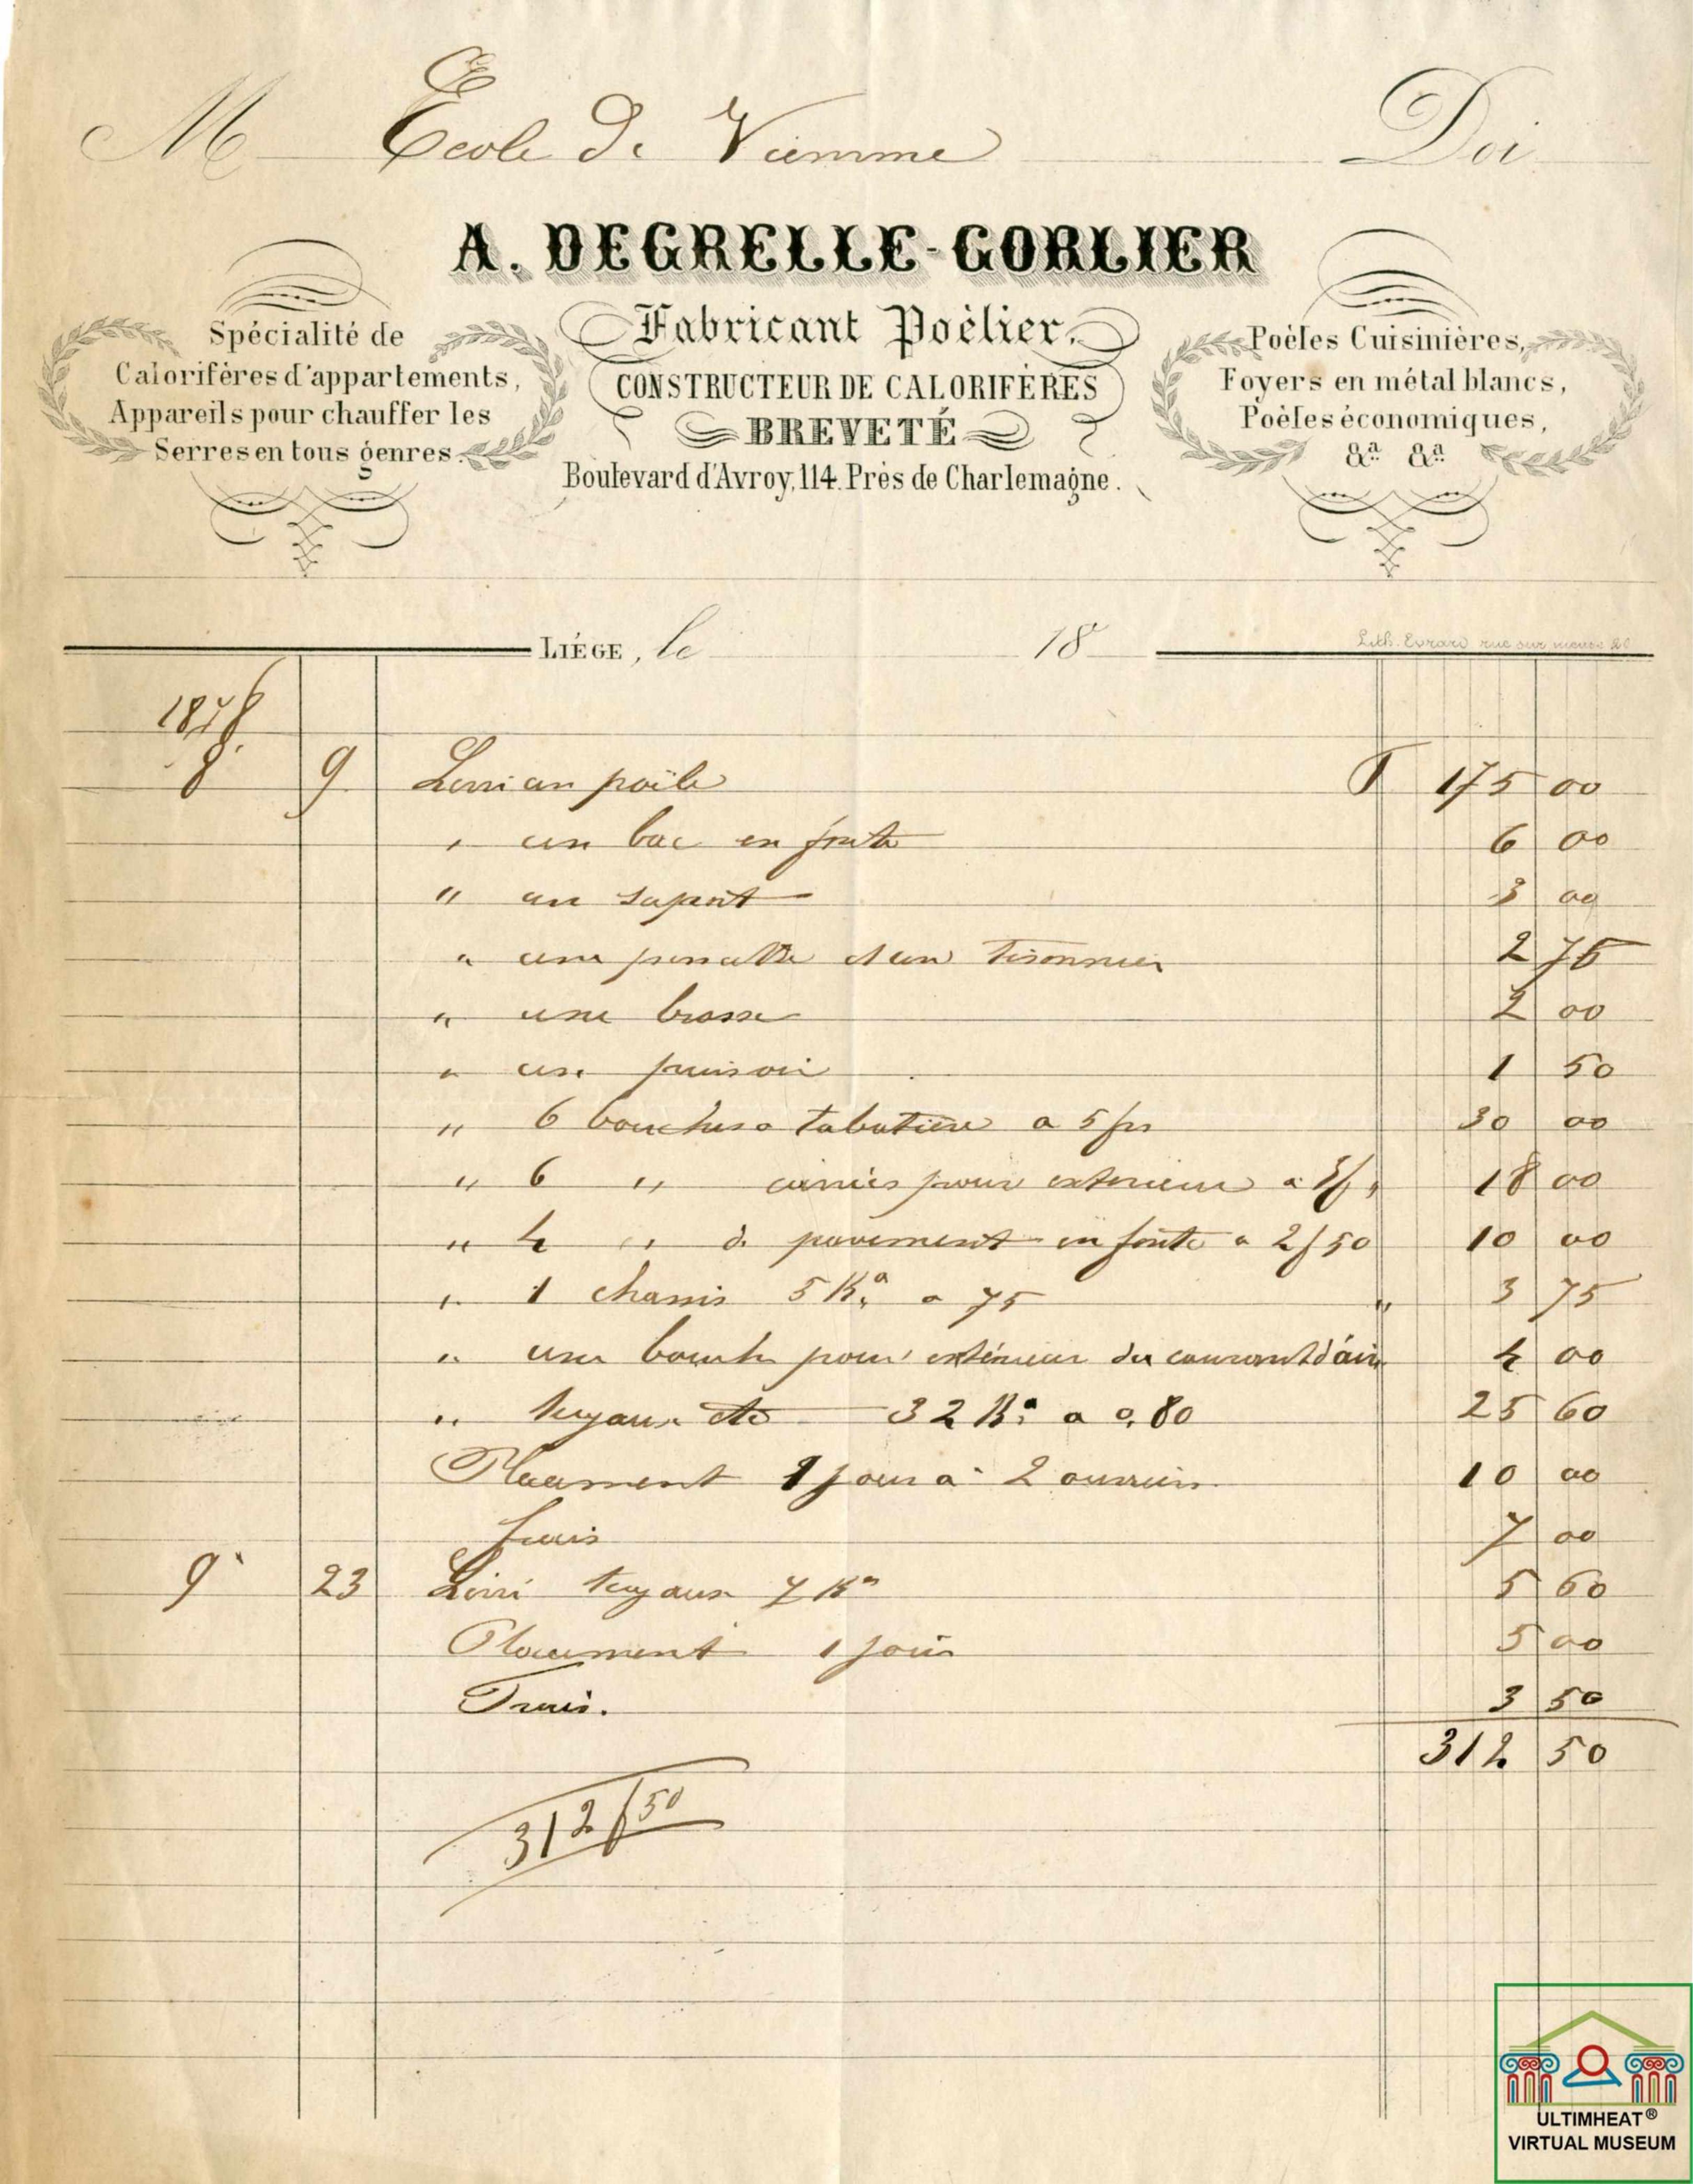 M École de Viemme Doi
A. DEGRELLE-GORLIER
Fabricant Poêlier.
CONSTRUCTEUR DE CALORIFÈRES
BREVETÉ
Boulevard d'Avroy, 114. Près de Charlemagne.
Spécialité de
Calorifères d'appartements,
Appareils pour chauffer les
Serres en tous genres.
Poêles Cuisinières,
Foyers en métal blancs,
Poêles économiques,
&a &a
LIÉGE, le 18
Lith. Evrard rue sur meuse 20
1878
8 9 Livri un poêle F 175 00
" un bac en fonte 6 00
" un suport 3 00
" une et un Tisonnier 2 75
" une brosse 2 00
" un puisoir 1 50
" 6 bouches a tabatiere a 5 frs 30 00
" 6 " pour exterieur a 3f " 18 00
" 4 " de pavement en fonte a 2f50 10 00
" 1 chassis 5 Ko a 75 " 3 75
" une bouche pour extérieur du courant d'air 4 00
" tuyaux etc 32 Ko a 0,80 25 60
Placement 1 jour a 2 ouvriers 10 00
frais 7 00
9 23 Livri tuyaux 7 Ko 5 60
Placement 1 jour 5 00
Frais. 3 50
312 50
312f50
ULTIMHEAT®
VIRTUAL MUSEUM